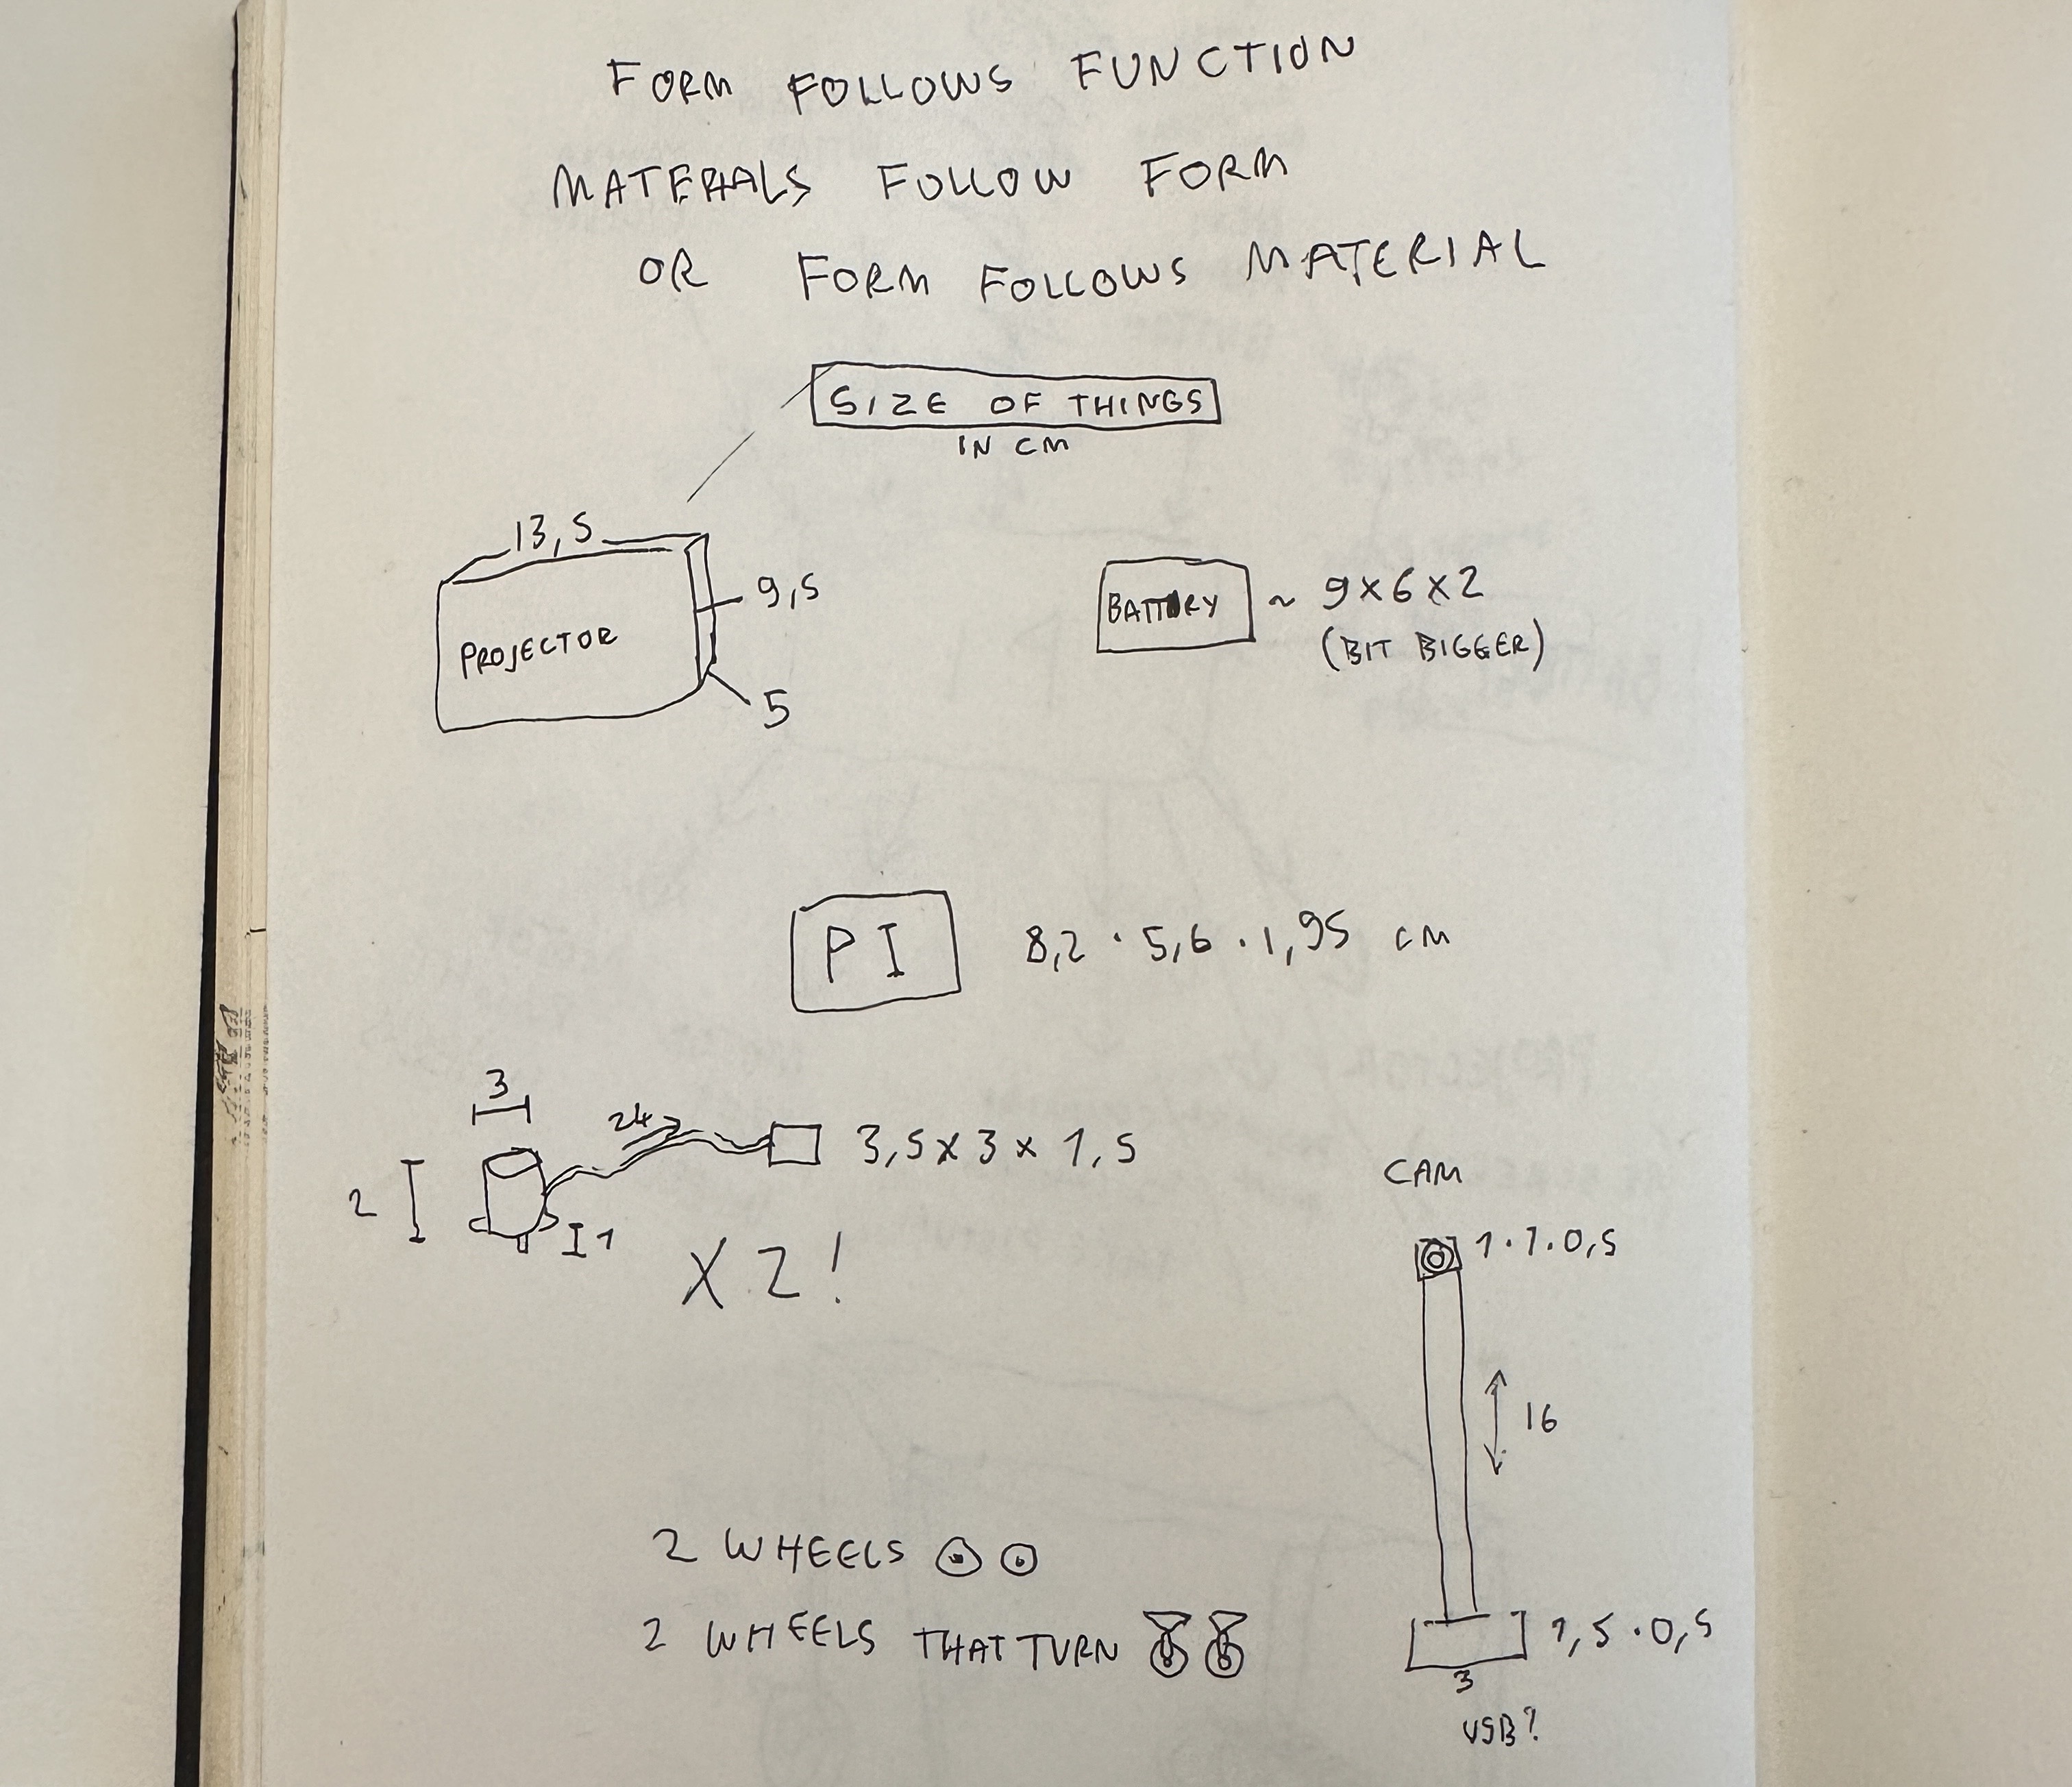 FORM FOLLOWS FUNCTION
MATERIALS FOLLOW FORM
OR FORM FOLLOWS MATERIAL
SIZE OF THINGS
IN CM
13,5
9,5
PROJECTOR
5
BATTERY ~ 9x6x2
(BIT BIGGER)
PI 8,2 · 5,6 · 1,95 cm
3
24
3,5 x 3 x 1,5
2
1
X2!
CAM
1·1·0,5
16
2 WHEELS
2 WHEELS THAT TURN
1,5·0,5
3
USB?